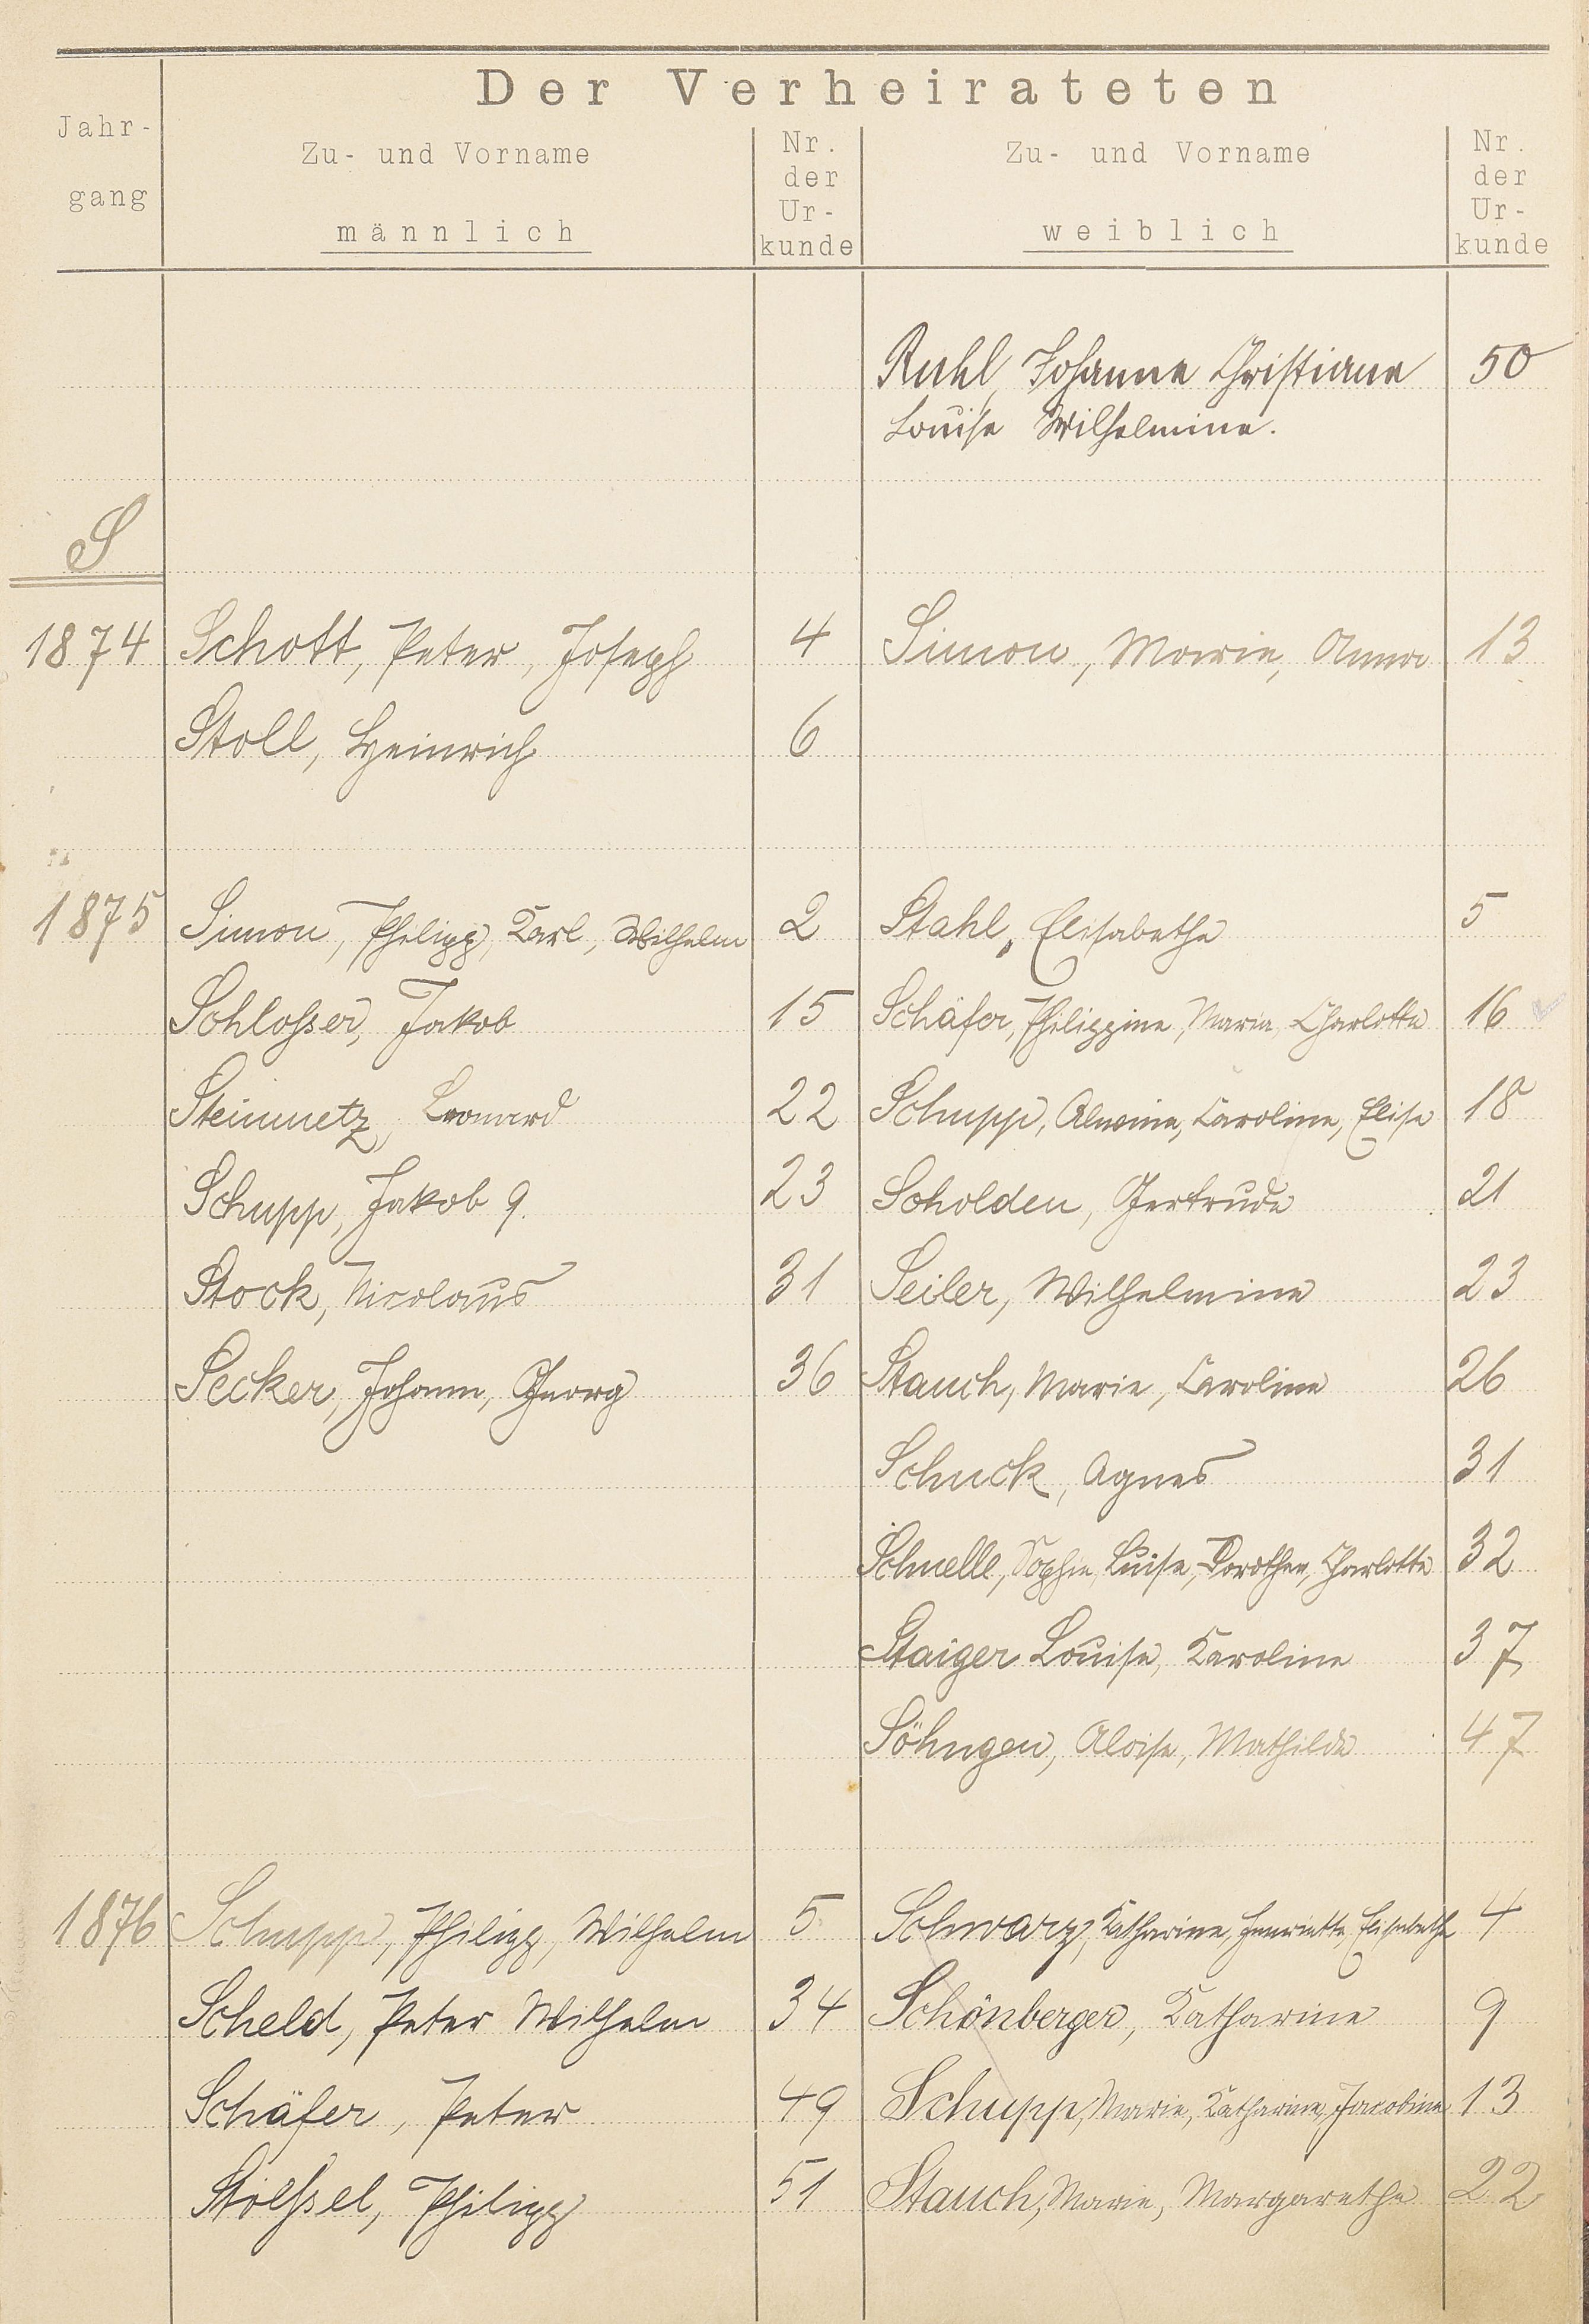 Der Verheirateten
Jahr-
gang
Zu- und Vorname
männlich
Nr.
der
Ur-
kunde
Zu- und Vorname
weiblich
Nr.
der
Ur-
kunde
Ruhl, Johanne Christiane 50
Louise Wilhelmine.
S
1874 Schott, Peter, Joseph 4 Simon, Marie, Anna 13
Stoll, Heinrich 6
1875 Simon, Philipp, Karl, Wilhelm 2 Stahl, Elisabethe 5
Schlosser, Jakob 15 Schäfer, Philippine, Maria, Charlotte 16
Steinmetz, Leonard 22 Schupp, Alwine, Karoline, Elise 18
Schupp, Jakob 9. 23 Scholden, Gertrude 21
Stock, Nicolaus 31 Seiler, Wilhelmine 23
Secker, Johann, Georg 36 Stauch, Marie, Caroline 26
Schuck, Agnes 31
Schnelle, Sophie, Luise, Dorothea, Charlotte 32
Staiger Louise, Karoline 37
Söhngen, Aloise, Mathilde 47
1876 Schupp, Philipp, Wilhelm 5 Schwarz, Katharine, Henriette, Elisabethe 4
Scheld, Peter Wilhelm 34 Schönberger, Katharine 9
Schäfer, Peter 49 Schupp, Marie, Katharine, Jacobine 13
Stoessel, Philipp 51 Stauch, Marie, Margarethe 22